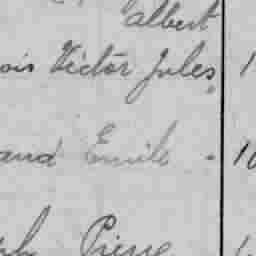 albert
ois Victor Jules, 1
and Emile . 10
ph Pierre